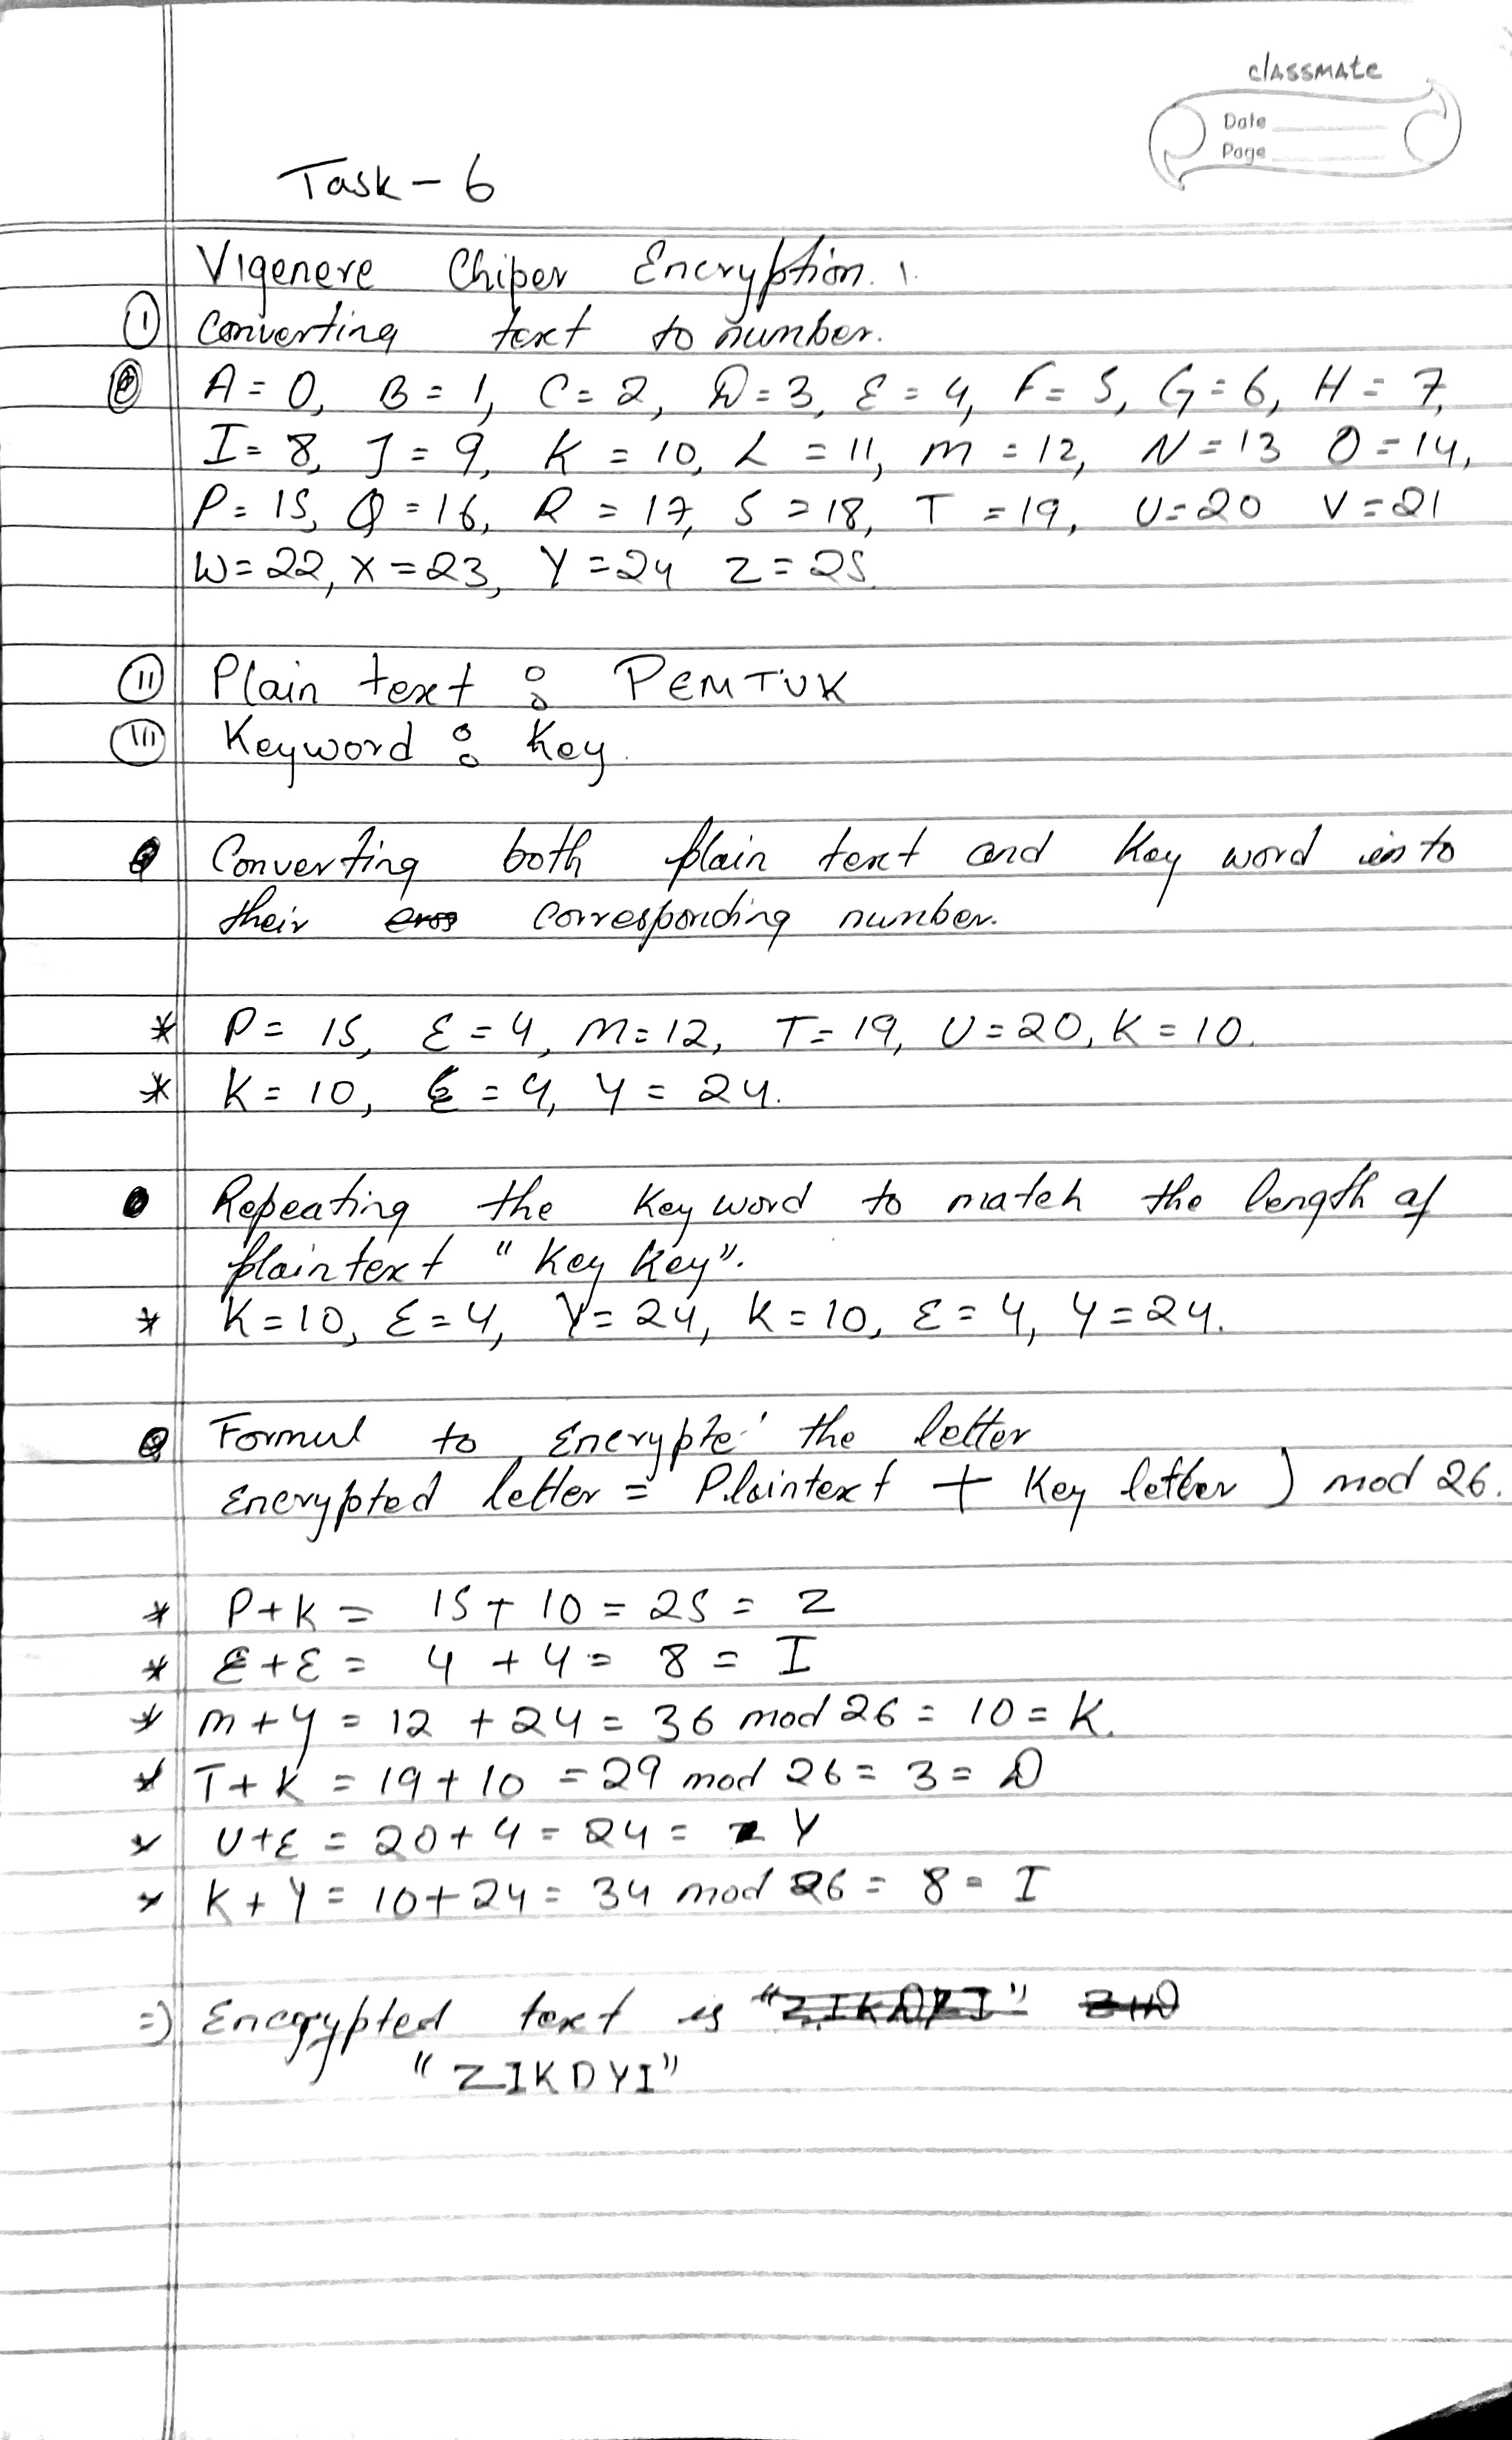 classmate
Date
Page
Task - 6
Vigenere Chiper Encryption.
(I) Converting text to number.
A = 0, B = 1, C = 2, D = 3, E = 4, F = 5, G = 6, H = 7,
I = 8, J = 9, K = 10, L = 11, M = 12, N = 13 O = 14,
P = 15, Q = 16, R = 17, S = 18, T = 19, U = 20 V = 21
W = 22, X = 23, Y = 24 Z = 25.
(II) Plain text : PEMTUK
(III) Keyword : Key.
Converting both plain text and key word into
their corresponding number.
* P = 15, E = 4, M = 12, T = 19, U = 20, K = 10.
* K = 10, E = 4, Y = 24.
Repeating the key word to match the length of
plaintext "Key Key".
* K = 10, E = 4, Y = 24, K = 10, E = 4, Y = 24.
Formul to Encrypte the letter
Encrypted letter = Plaintext + Key letter ) mod 26.
* P + K = 15 + 10 = 25 = Z
* E + E = 4 + 4 = 8 = I
* M + Y = 12 + 24 = 36 mod 26 = 10 = K.
* T + K = 19 + 10 = 29 mod 26 = 3 = D
* U + E = 20 + 4 = 24 = Y
* K + Y = 10 + 24 = 34 mod 26 = 8 = I
=) Encrypted text is
"ZIKDYI"